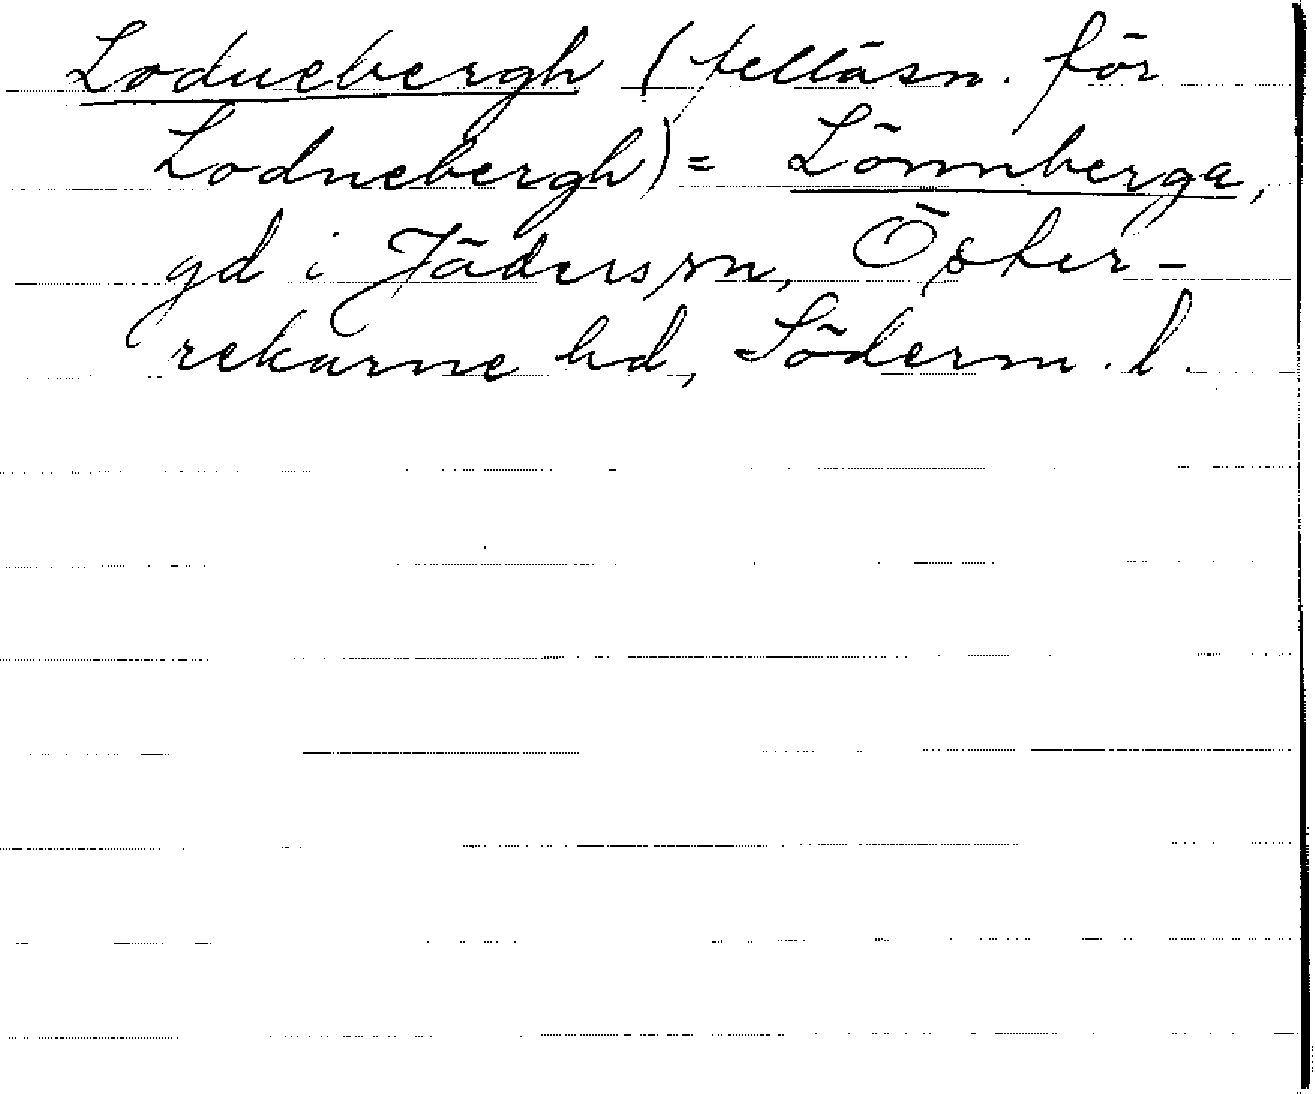 Loduebergh (felläsn. för
Lodnebergh) = Lönnberga,
gd i Jäders sn, Öster-
rekarne hd, Söderm. l.